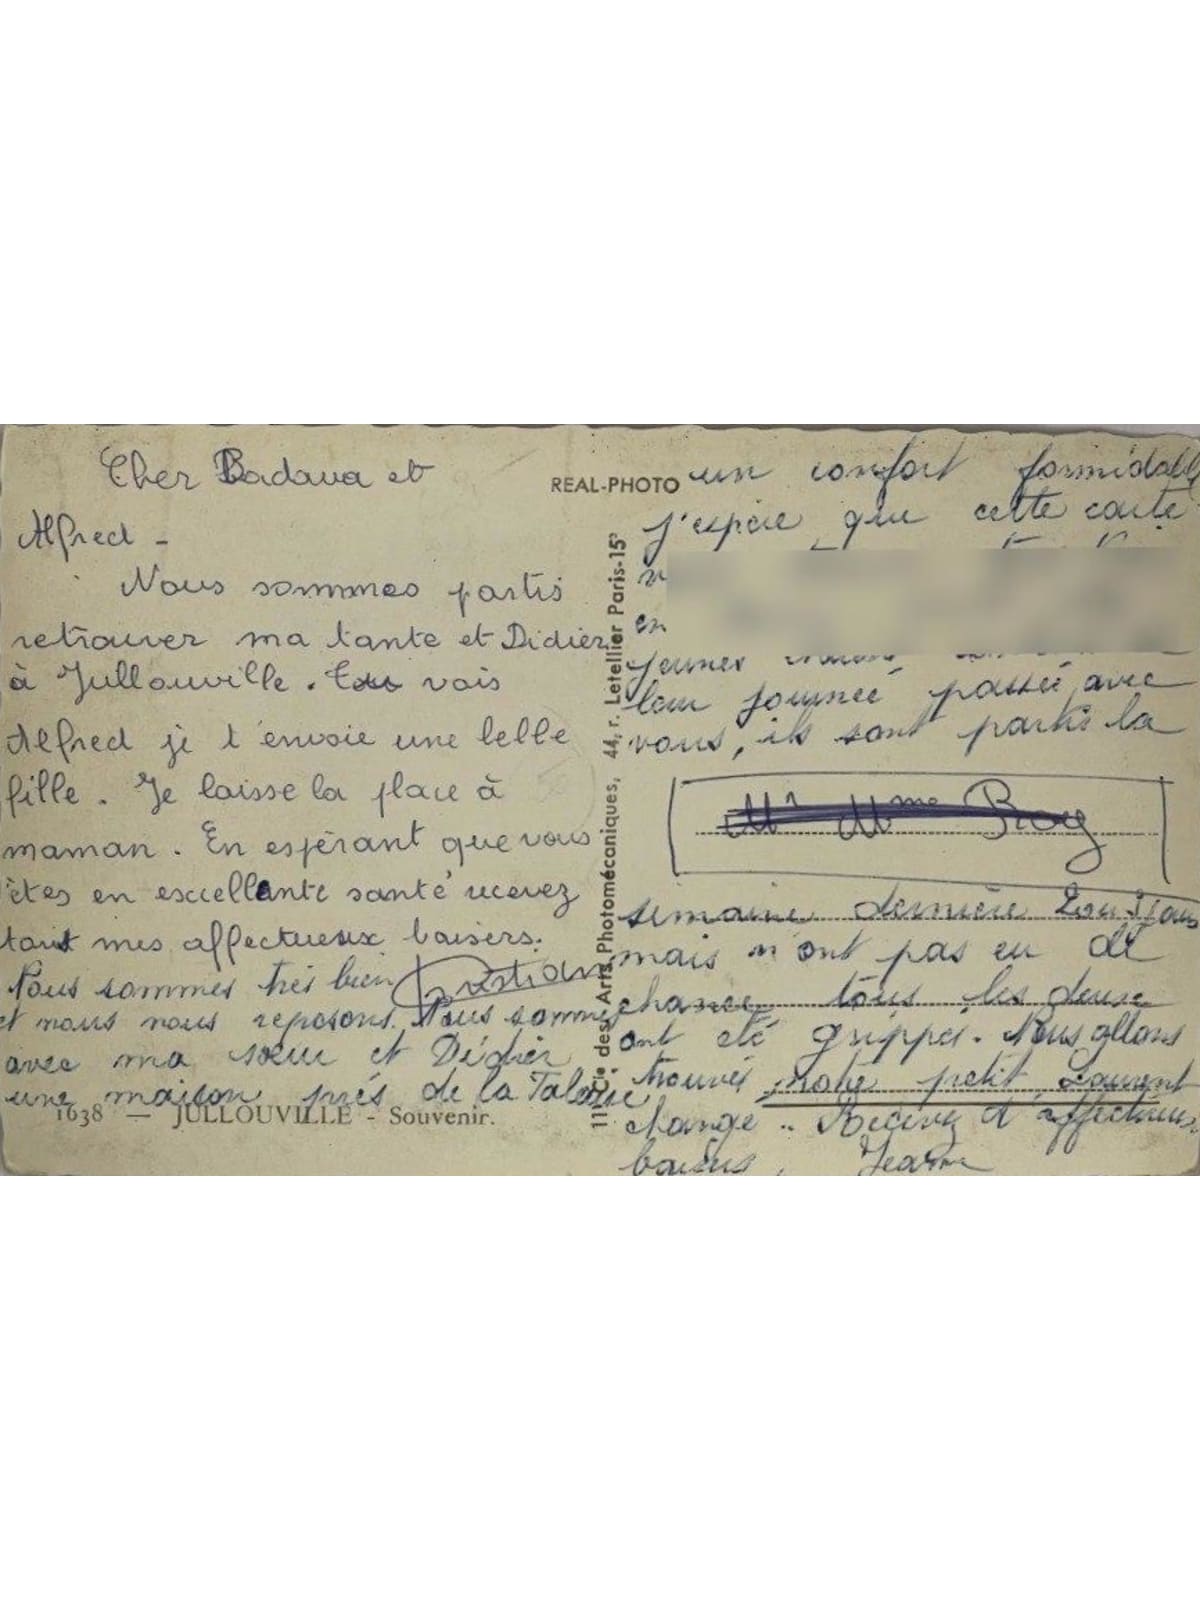 Cher Badava et
Alfred -
Nous sommes partis
retrouver ma tante et Didier
à Jullouville. Tu vois
Alfred je t'envoie une belle
fille. Je laisse la place à
maman. En espérant que vous
êtes en excellente santé recevez
tous mes affectueux baisers.
Nous sommes très bien
et nous nous reposons. Nous sommes
avec ma sœur et Didier
une maison près de la
1638 — JULLOUVILLE - Souvenir.
REAL-PHOTO
des Arts Photomécaniques, 44, r. Letellier Paris-15e
un confort formidable
j'espère que cette carte
en
jeunes
leur journée passée avec
vous, ils sont partis la
Mr Mme Roy
semaine dernière
mais n'ont pas eu de
chance tous les deux
ont été grippés. Nous allons
trouvés notre petit Laurent
changé.. Recevez d'affectueux
baisers, Jeanne